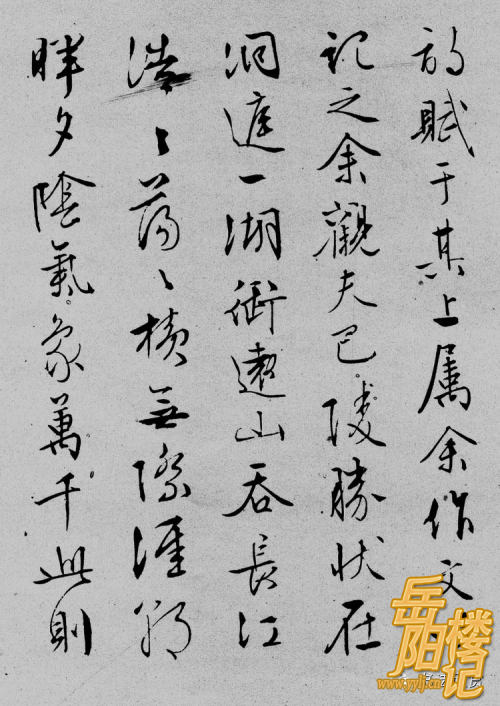 詩賦于其上属余作文
記之余觀夫巴陵勝狀在
洞庭一湖銜遠山吞長江
浩〻蕩〻横無際涯朝
暉夕陰氣象萬千此則
岳阳楼记
www.yylj.cn